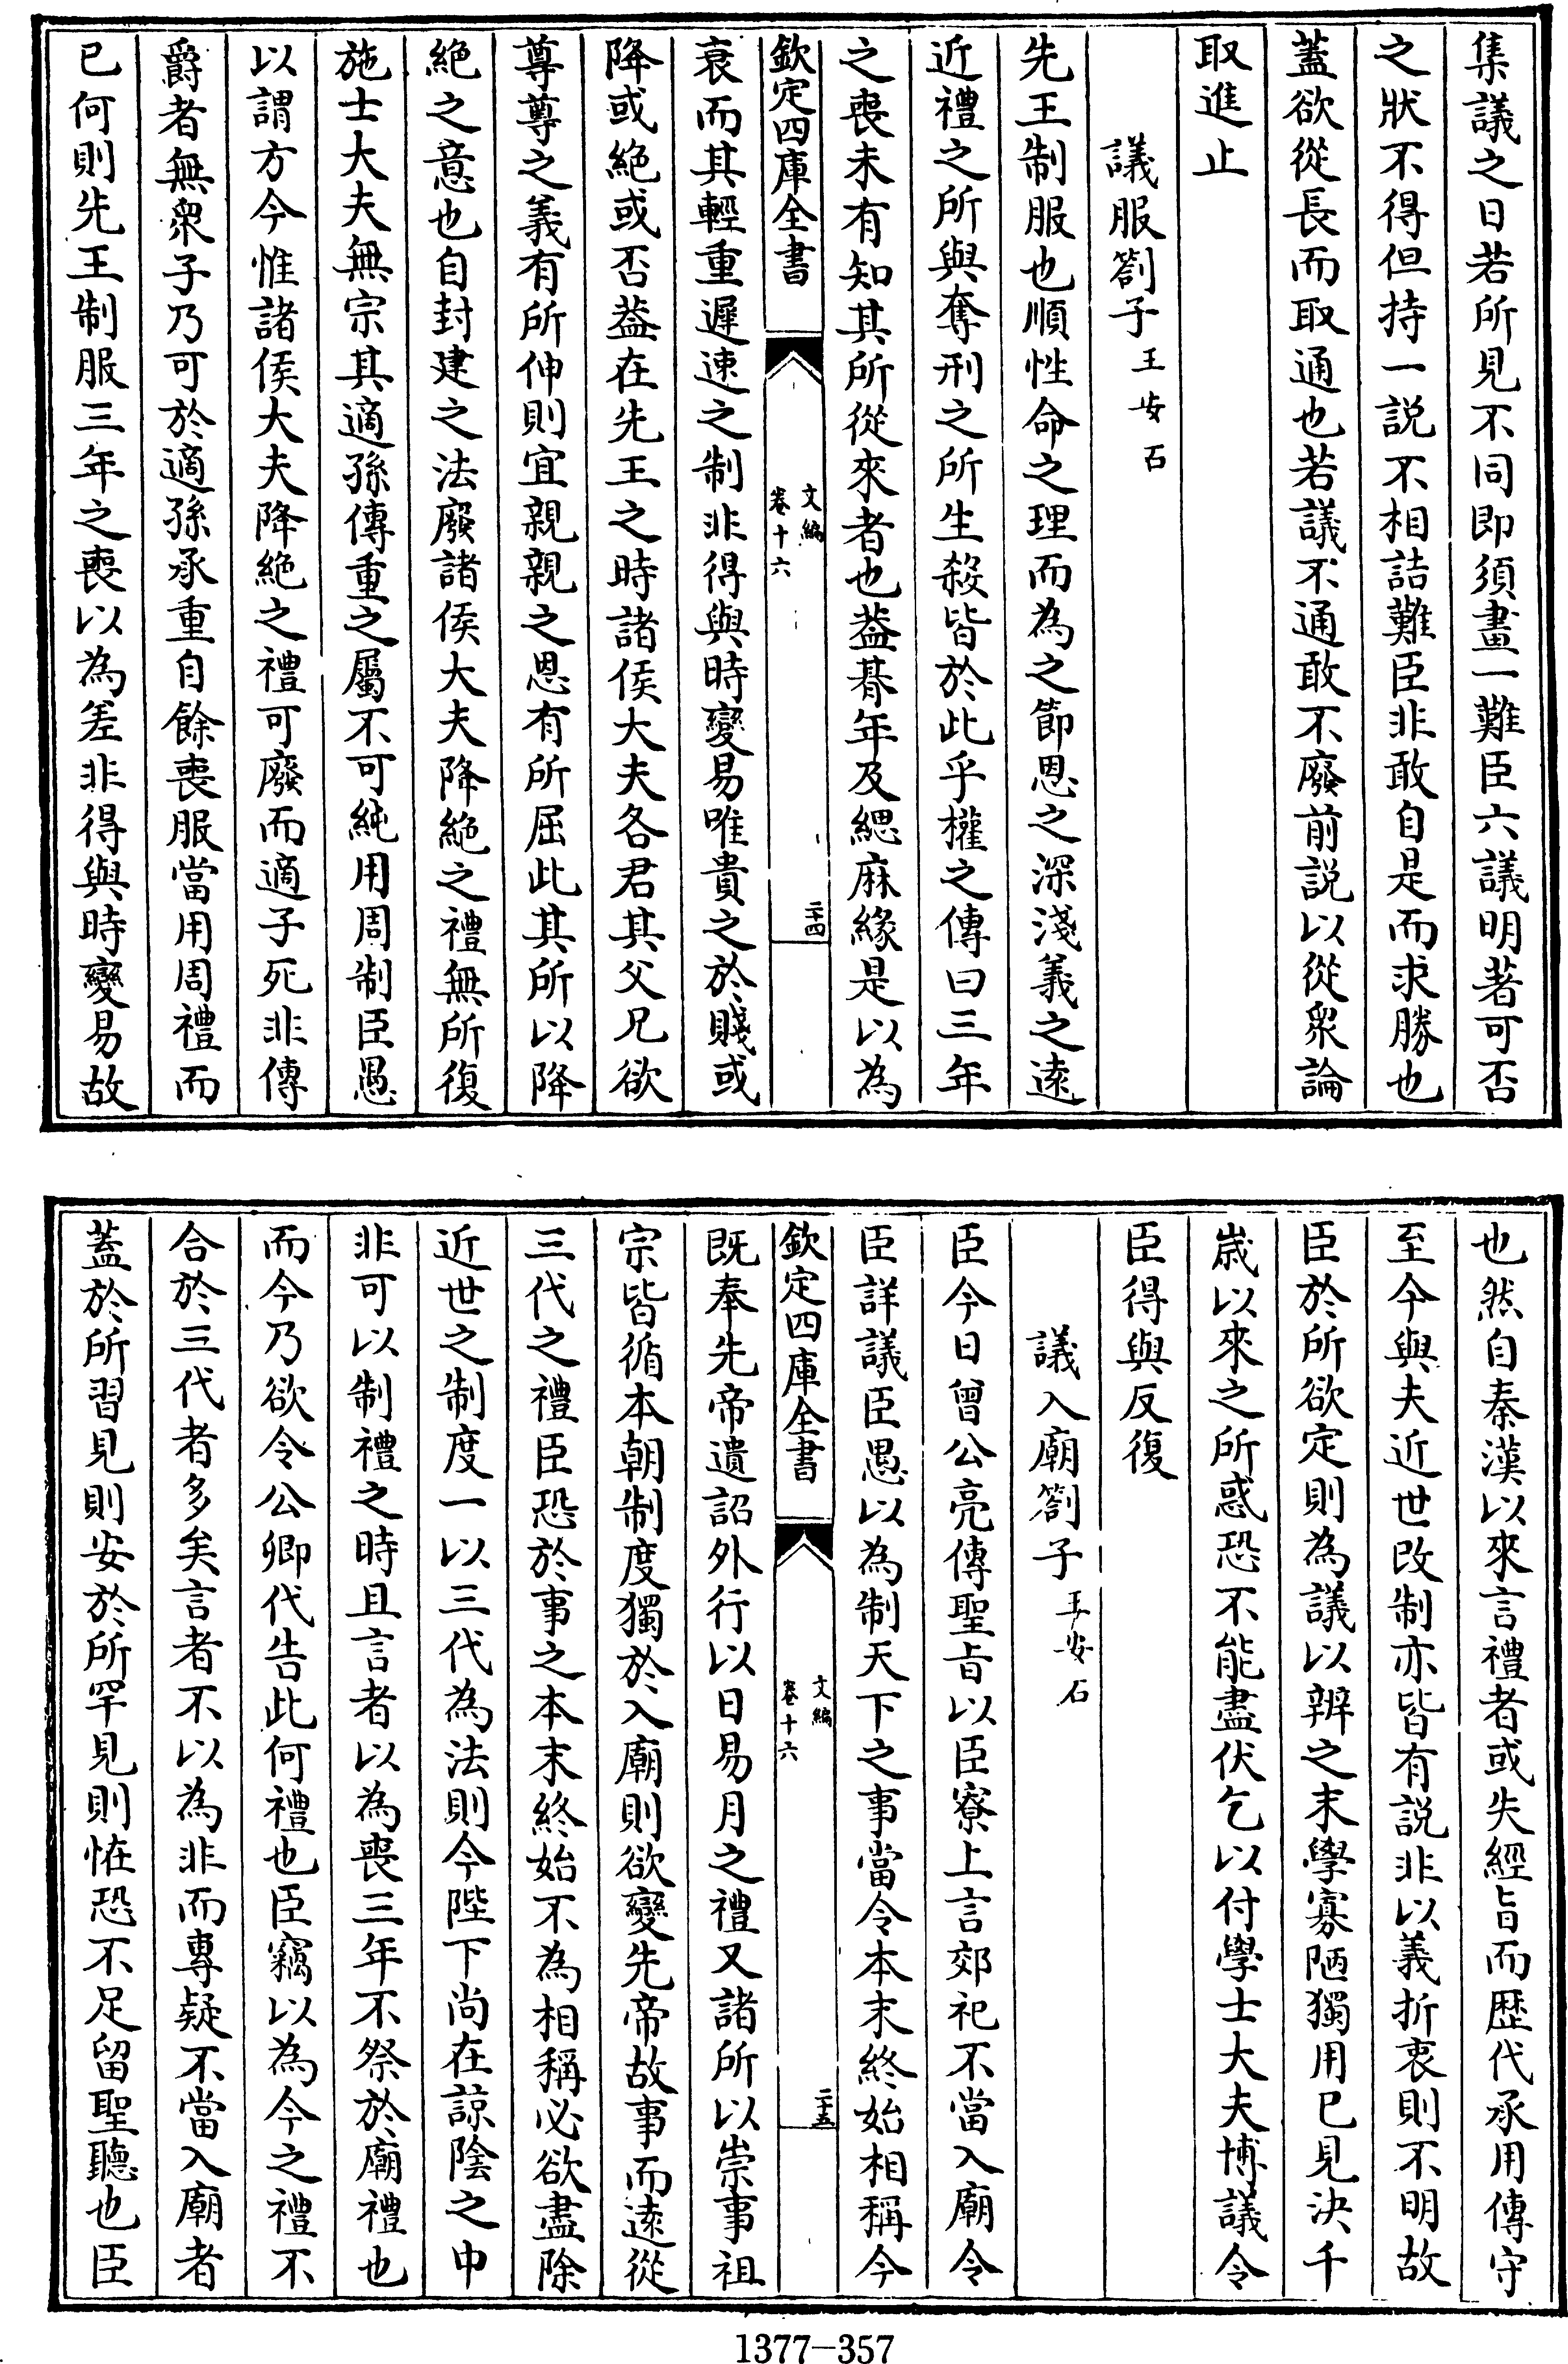 集議之日若所見不同即須畫一難臣六議明著可否
之狀不得但持一説不相詰難臣非敢自是而求勝也
蓋欲從長而取通也若議不通敢不廢前説以從衆論
取進止
議服劄子王安石
先王制服也順性命之理而為之節恩之深淺義之遠
近禮之所與奪刑之所生殺皆於此乎權之傳曰三年
之喪未有知其所從來者也葢朞年及緦麻緣是以為
欽定四庫全書
文編
卷十六
二十四
衰而其輕重遲速之制非得與時變易唯貴之於賤或
降或絶或否葢在先王之時諸侯大夫各君其父兄欲
尊尊之義有所伸則宜親親之恩有所屈此其所以降
絶之意也自封建之法廢諸侯大夫降絶之禮無所復
施士大夫無宗其適孫傳重之屬不可純用周制臣愚
以謂方今惟諸侯大夫降絶之禮可廢而適子死非傳
爵者無衆子乃可於適孫承重自餘喪服當用周禮而
已何則先王制服三年之喪以為差非得與時變易故
也然自秦漢以來言禮者或失經旨而歴代承用傳守
至今與夫近世改制亦皆有説非以義折衷則不明故
臣於所欲定則為議以辨之末學寡陋獨用已見決千
歳以來之所惑恐不能盡伏乞以付學士大夫博議令
臣得與反復
議入廟劄子王安石
臣今日曾公亮傳聖旨以臣寮上言郊祀不當入廟令
臣詳議臣愚以為制天下之事當令本末終始相稱今
欽定四庫全書
文編
卷十六
二十五
既奉先帝遺詔外行以日易月之禮又諸所以崇事祖
宗皆循本朝制度獨於入廟則欲變先帝故事而遠從
三代之禮臣恐於事之本末終始不為相稱必欲盡除
近世之制度一以三代為法則今陛下尚在諒陰之中
非可以制禮之時且言者以為喪三年不祭於廟禮也
而今乃欲令公卿代告此何禮也臣竊以為今之禮不
合於三代者多矣言者不以為非而專疑不當入廟者
蓋於所習見則安於所罕見則恠恐不足留聖聽也臣
1377-357